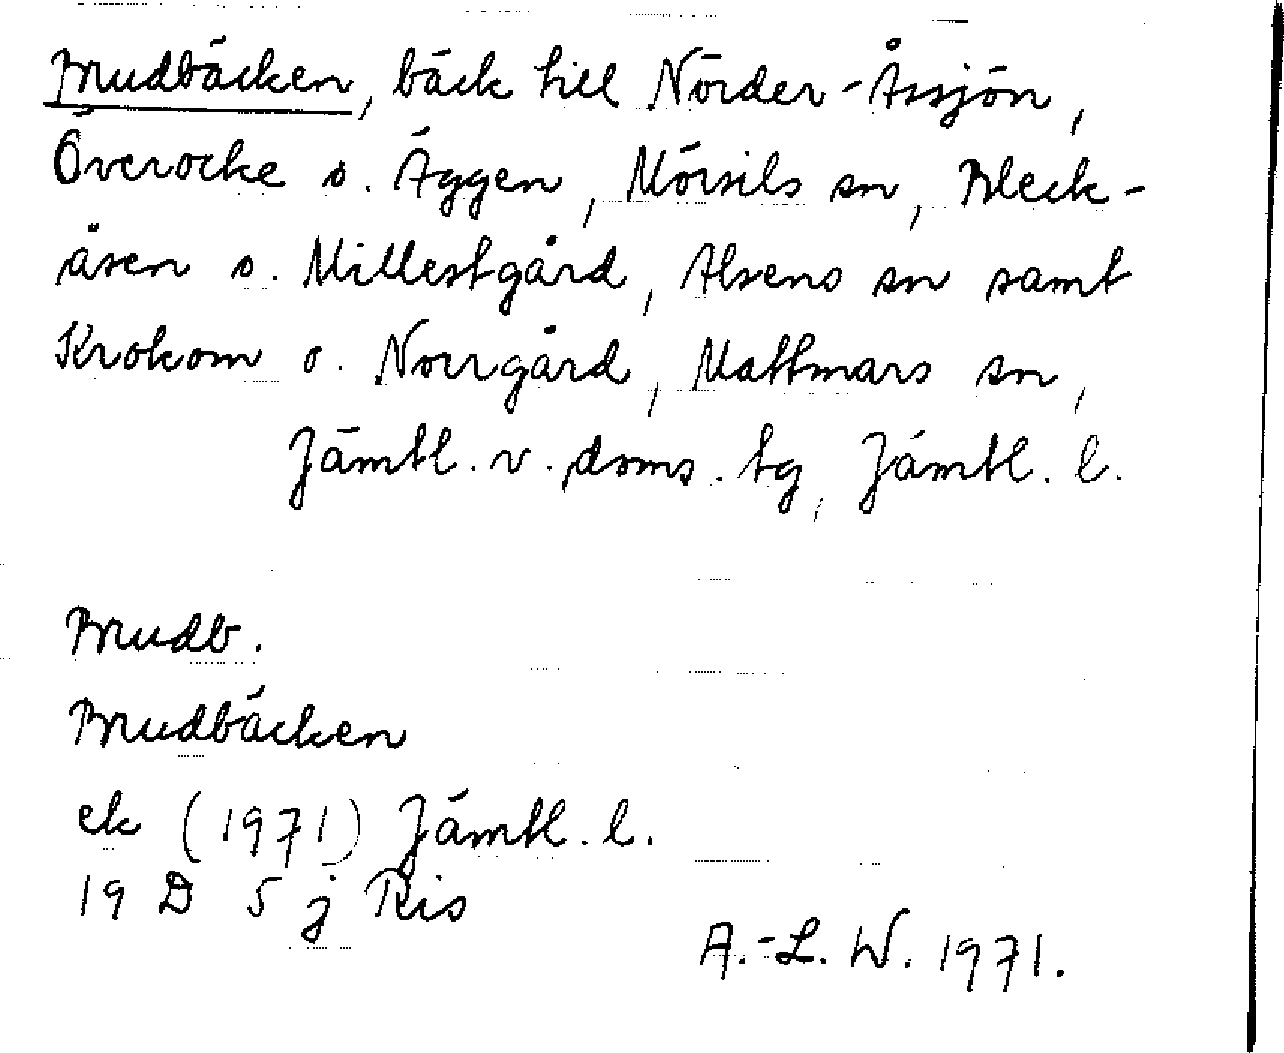 Brudbäcken, bäck till Nörder-Åssjön,
Överocke o. Äggen, Mörsils sn, Bleck-
åsen o. Millestgård, Alsens sn samt
Krokom o. Norrgård, Mattmars sn,
Jämtl. v. doms. tg, Jämtl. l.
Brudb.
Brudbäcken
ek (1971) Jämtl. l.
19 D 5 j Ris
A.-L. W. 1971.